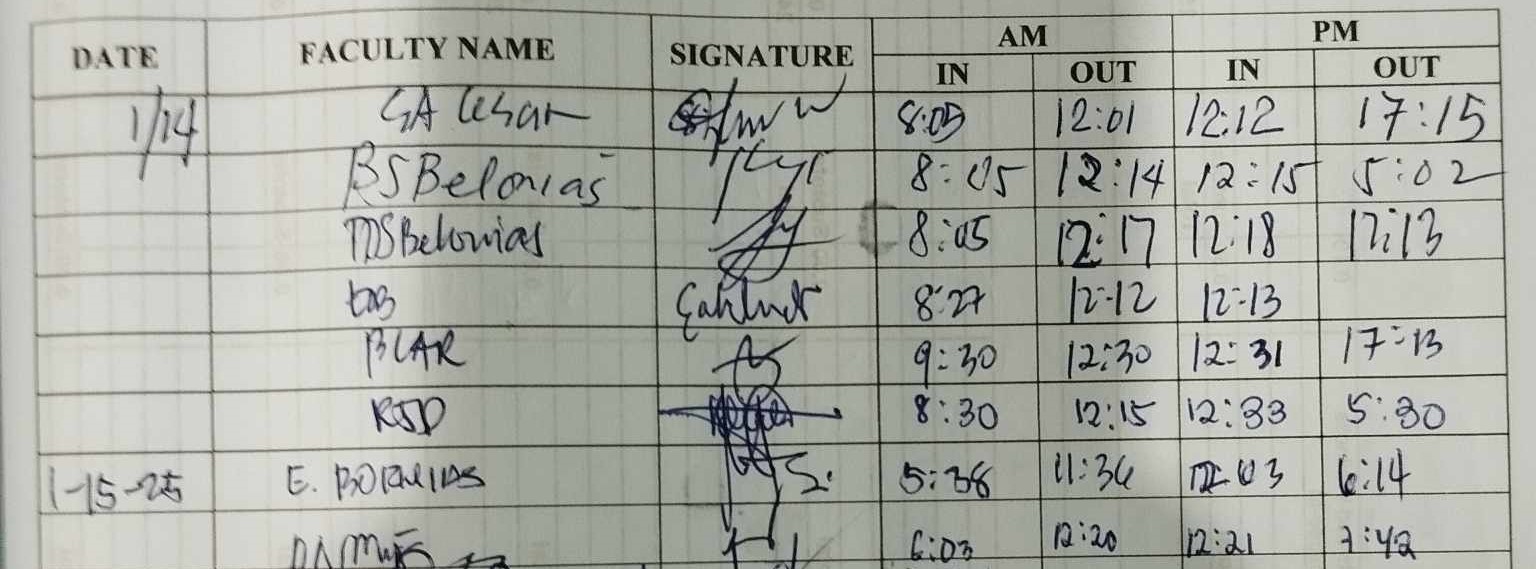 DATE FACULTY NAME SIGNATURE AM PM
IN OUT IN OUT
1/14 GA Cesar 8:05 12:01 12:12 17:15
BSBelonias 8:05 12:14 12:15 5:02
MSBelonias 8:05 12:17 12:18 17:13
8:27 12-12 12-13
BLAR 9:30 12:30 12:31 17-13
RSD 8:30 12:15 12:33 5:30
1-15-25 E. BORNIAS 5:38 11:36 12:03 6:14
6:03 12:20 12:21 7:42